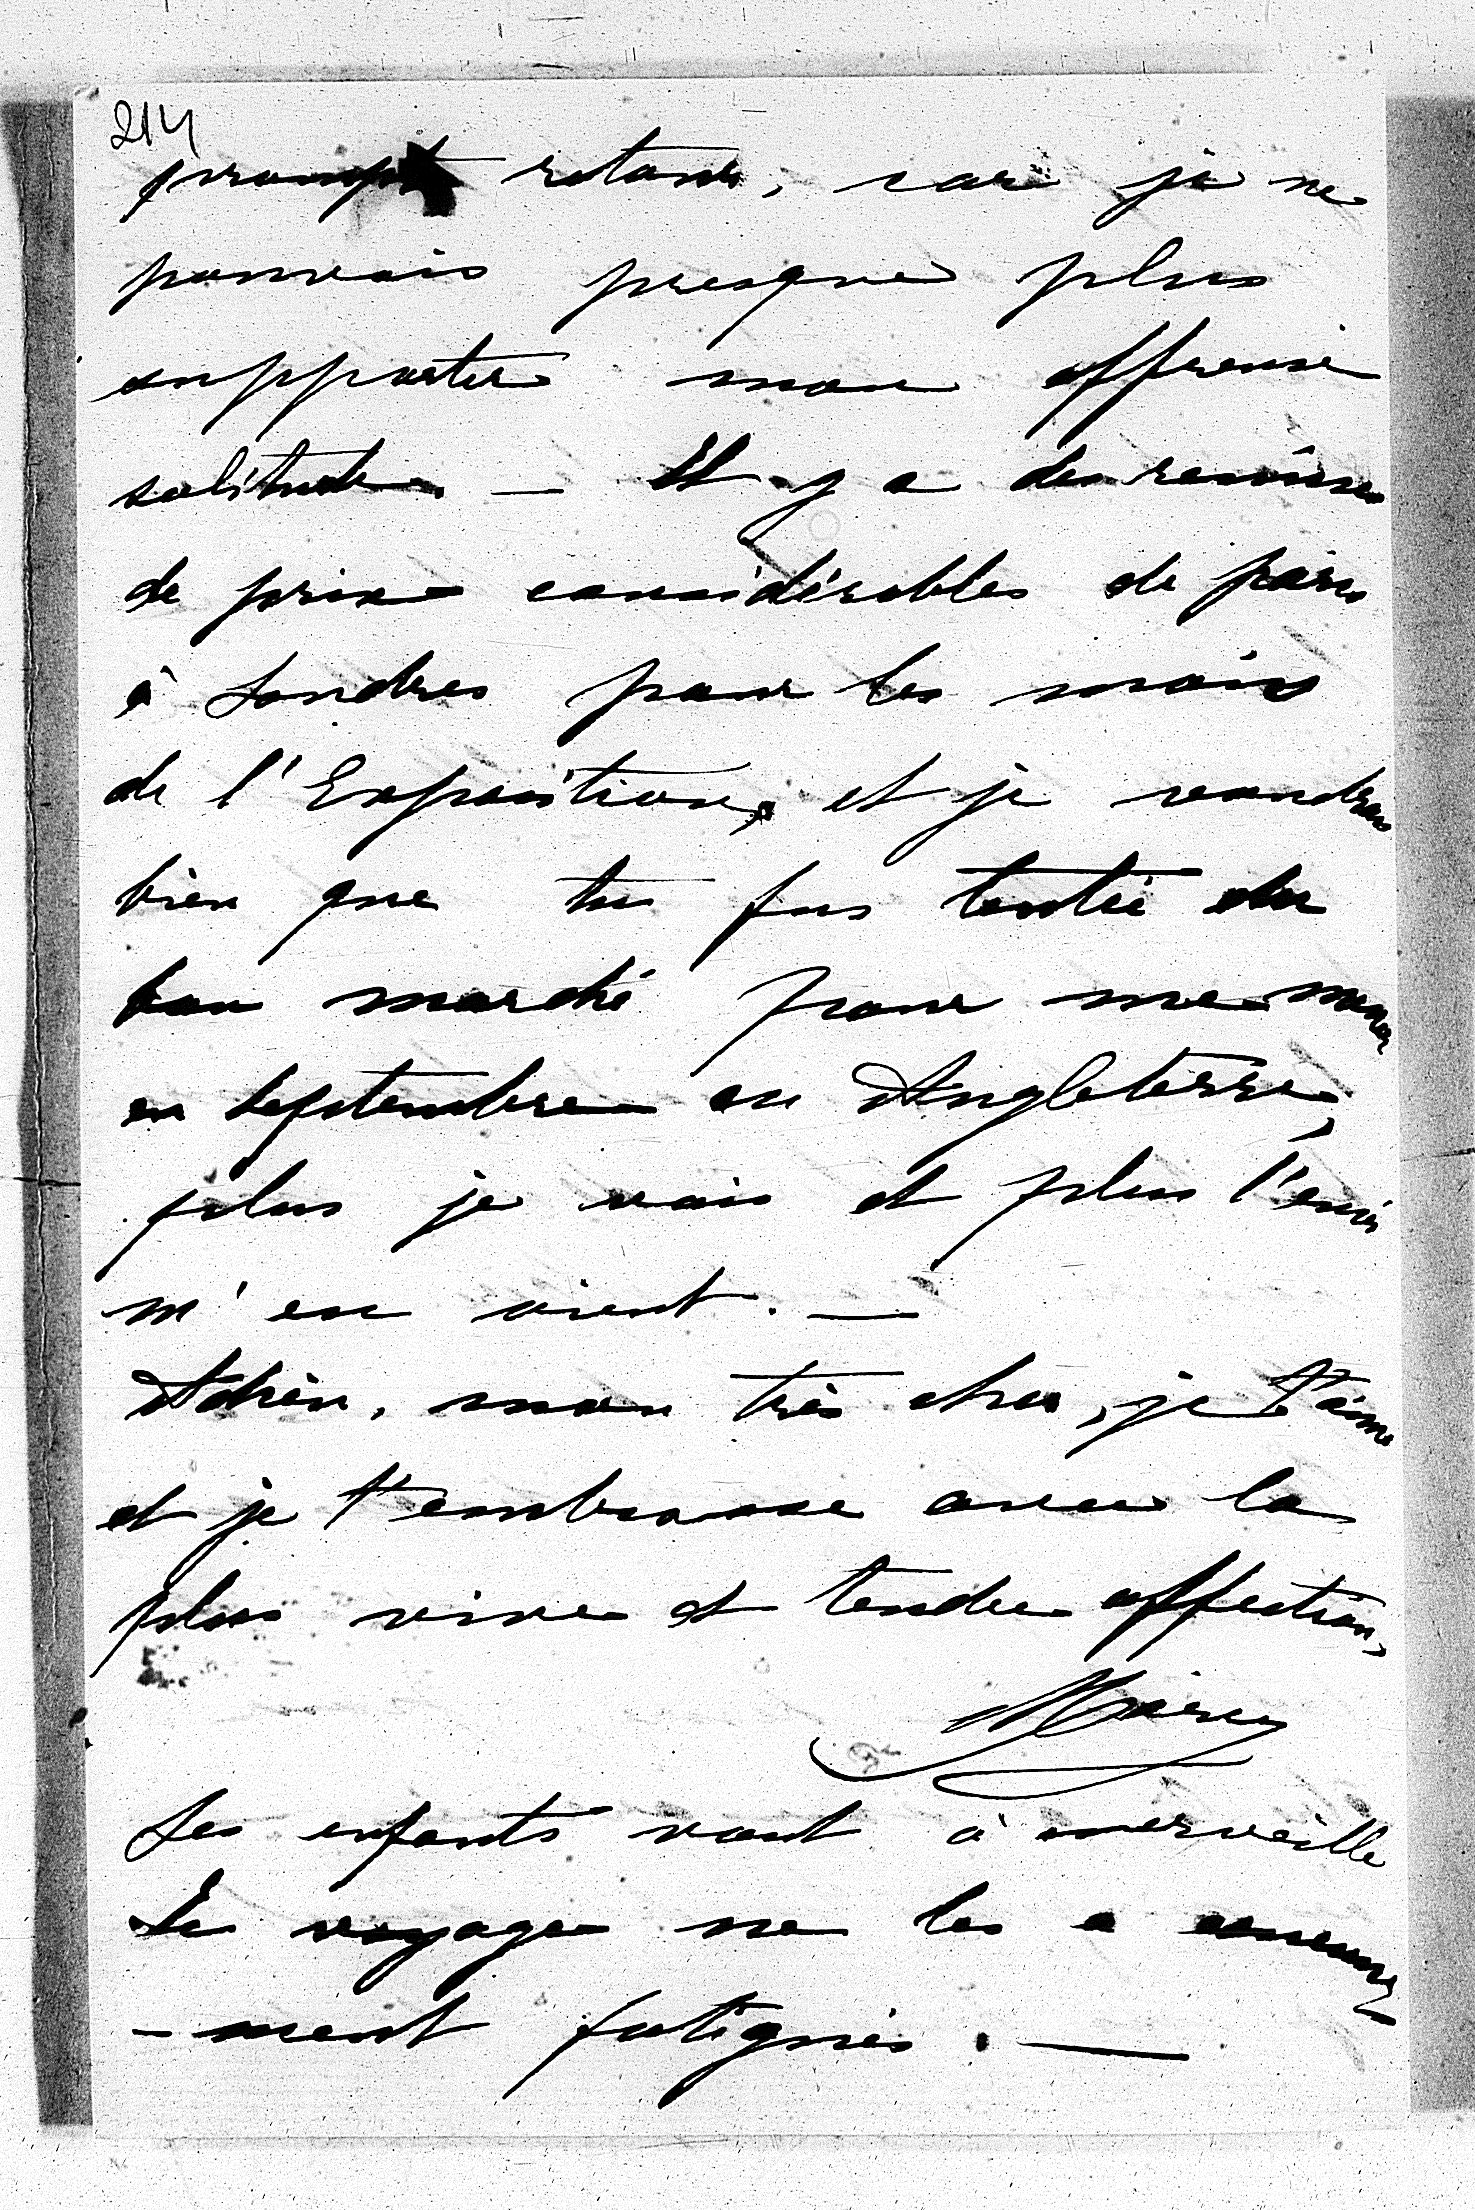 214
prompt retour, car je ne
pouvais presque plus
supporter mon affreuse
solitude. — Il y a des remises
de prix considérables de paris
à Londres pour les mois
de l'Exposition, et je voudrais
bien que tu fus tenté du
bon marché pour me mener
en septembre en Angleterre,
plus je vais et plus l'envie
m'en vient. —
Adrien, mon très cher, je t'aime
et je t'embrasse avec la
plus vive et tendre affection,
Mary
Les enfants vont à merveille
Le voyage ne les a aucune-
-ment fatigués. —